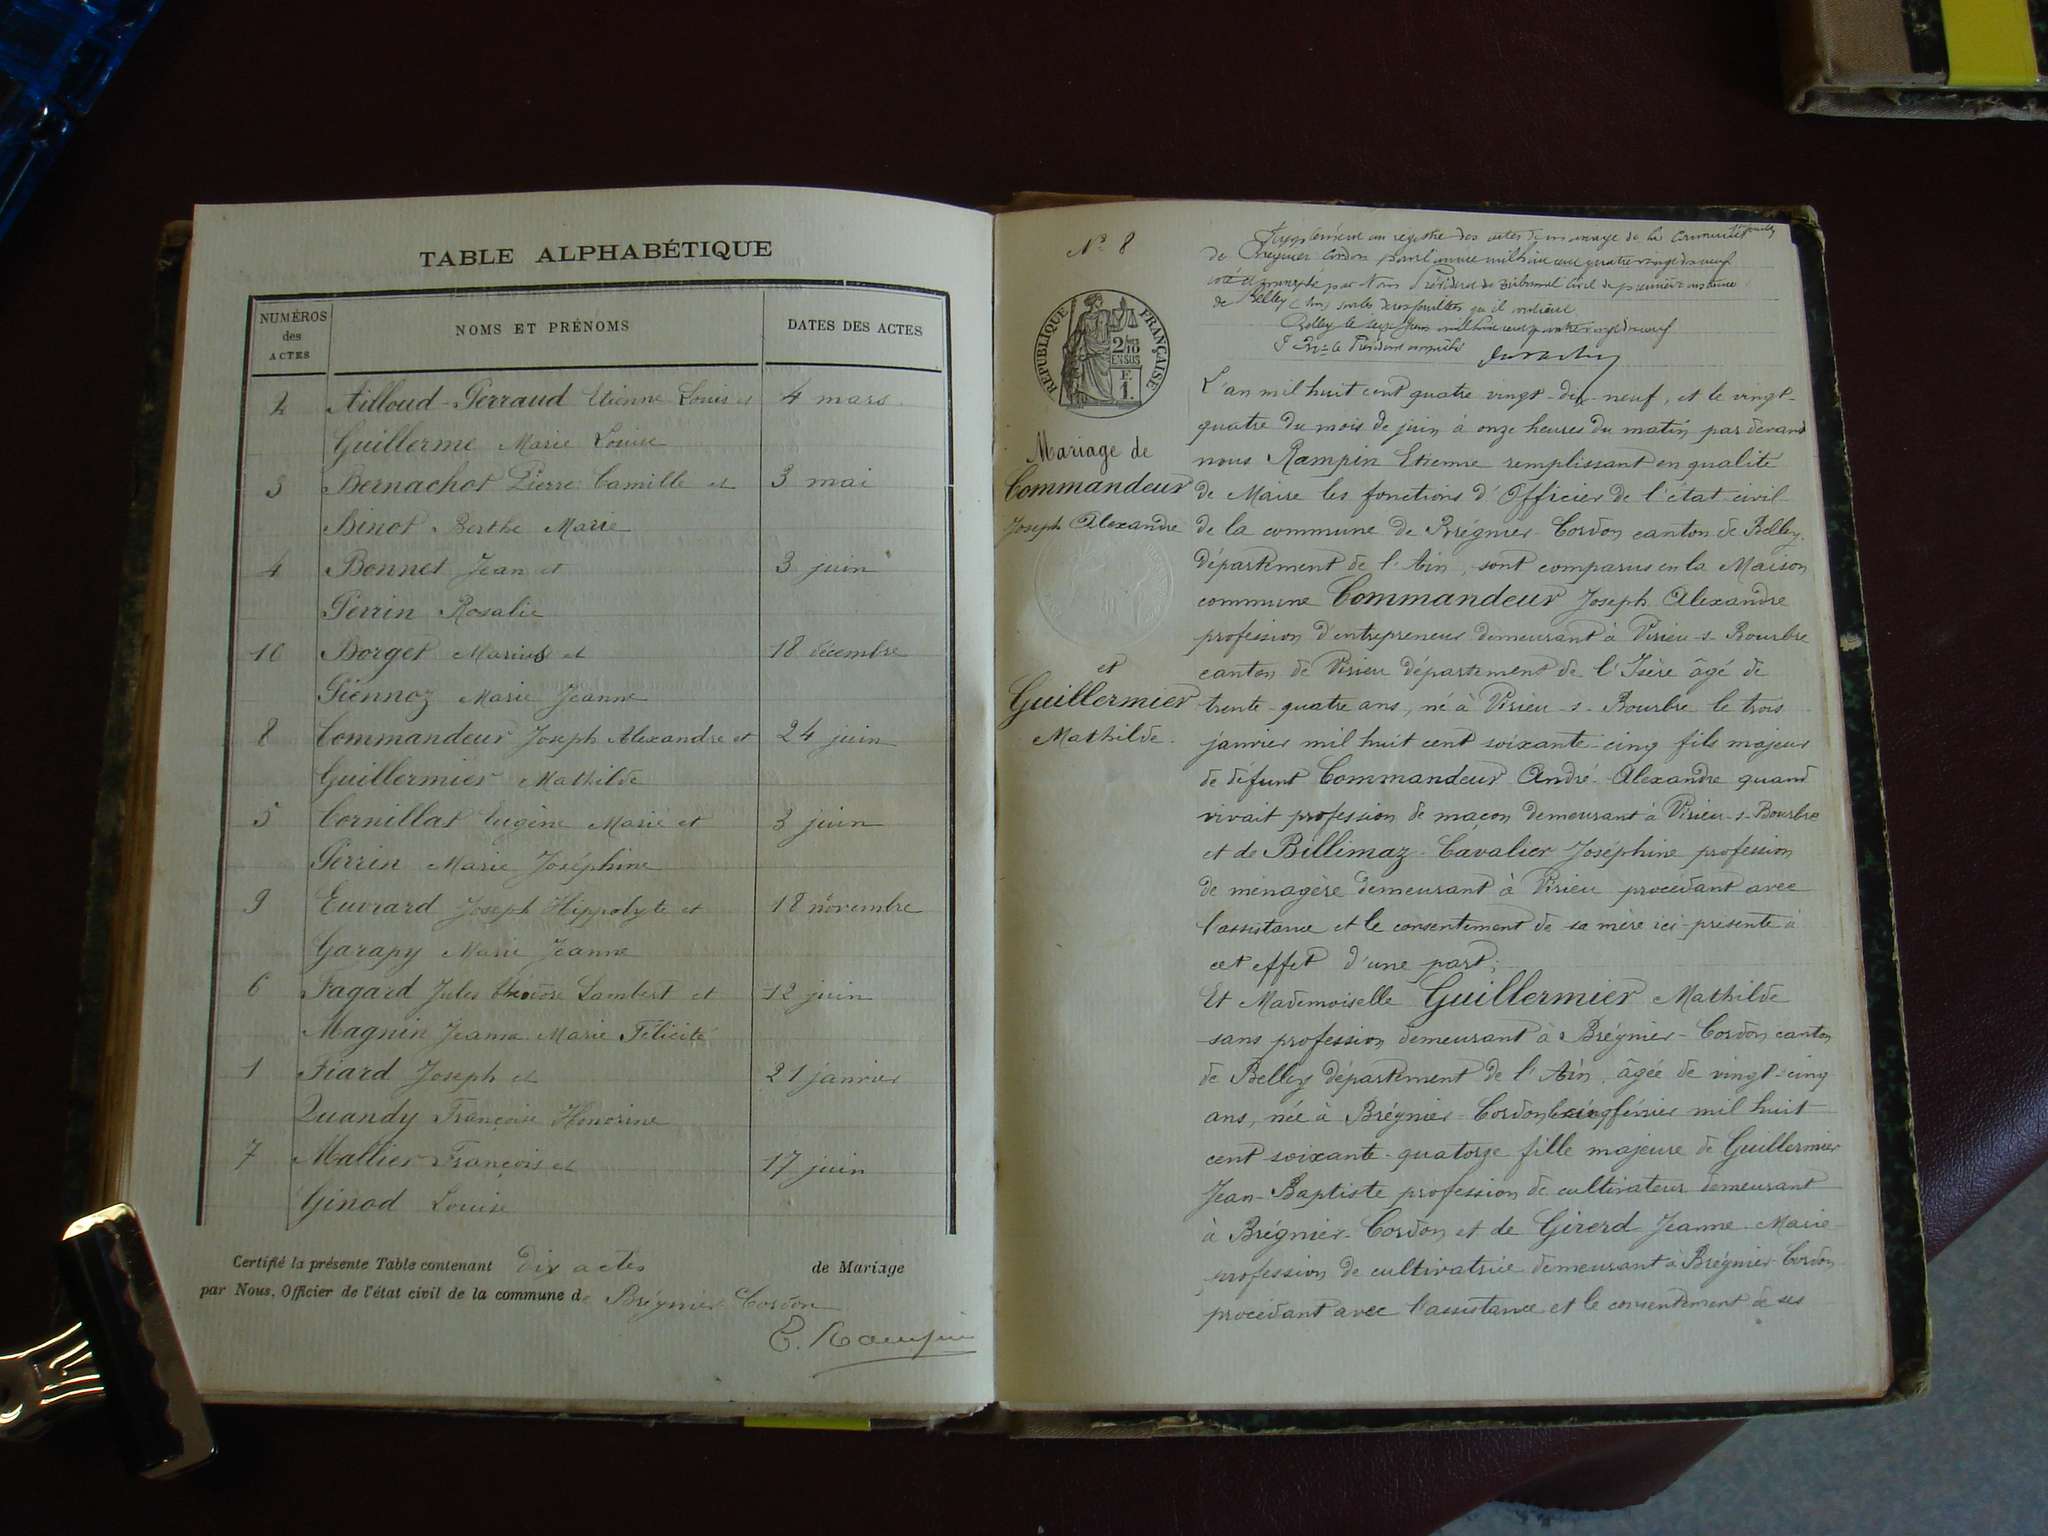 TABLE ALPHABÉTIQUE
NUMÉROS des ACTES
NOMS ET PRÉNOMS
DATES DES ACTES
2 Ailloud-Perraud Etienne Louis et 4 mars
Guillerme Marie Louise
3 Bernachot Pierre Camille et 3 mai
Binot Berthe Marie
4 Bonnet Jean et 3 juin
Perrin Rosalie
10 Borget Marius et 18 décembre
Piennoz Marie Jeanne
8 Commandeur Joseph Alexandre et 24 juin
Guillermier Mathilde
5 Cornillat Eugène Marie et 3 juin
Perrin Marie Joséphine
9 Euvrard Joseph Hippolyte et 18 novembre
Garapy Marie Jeanne
6 Fagard Jules Théodore Lambert et 12 juin
Magnin Jeanne Marie Félicité
1 Fiard Joseph et 21 janvier
Quandy Françoise Honorine
7 Mallier François et 17 juin
Ginod Louise
Certifié la présente Table contenant dix actes de Mariage
par Nous, Officier de l'état civil de la commune de Brégnier-Cordon
E. Rampin
N° 8
RÉPUBLIQUE FRANÇAISE
2/10 EN SUS
F. 1.
Mariage de
Commandeur
Joseph Alexandre
et
Guillermier
Mathilde.
Supplément au registre des actes de mariage de la commune
de Brégnier-Cordon pour l'année mil huit cent quatre vingt dix neuf
coté et paraphé par Nous Président du Tribunal civil de première instance
de Belley sur les deux feuillets qu'il contient.
Belley le seize Juin mil huit cent quatre vingt dix neuf
P. le Président empêché
L'an mil huit cent quatre vingt-dix-neuf, et le vingt-
quatre du mois de juin à onze heures du matin par devant
nous Rampin Etienne remplissant en qualité
de Maire les fonctions d'Officier de l'état-civil
de la commune de Brégnier-Cordon canton de Belley.
département de l'Ain, sont comparus en la Maison
commune Commandeur Joseph Alexandre
profession d'entrepreneur demeurant à Virieu-s-Bourbre
canton de Virieu département de l'Isère âgé de
trente-quatre ans, né à Virieu-s-Bourbre le trois
janvier mil huit cent soixante-cinq fils majeur
de défunt Commandeur André-Alexandre quand
vivait profession de maçon demeurant à Virieu-s-Bourbre
et de Billimaz-Cavalier Joséphine profession
de ménagère demeurant à Virieu procédant avec
l'assistance et le consentement de sa mère ici-présente à
cet effet d'une part;
Et Mademoiselle Guillermier Mathilde
sans profession demeurant à Brégnier-Cordon canton
de Belley département de l'Ain, âgée de vingt-cinq
ans, née à Brégnier-Cordon le cinq février mil huit
cent soixante-quatorze fille majeure de Guillermier
Jean-Baptiste profession de cultivateur demeurant
à Brégnier-Cordon et de Girerd Jeanne-Marie
profession de cultivatrice demeurant à Brégnier-Cordon
procédant avec l'assistance et le consentement de ses